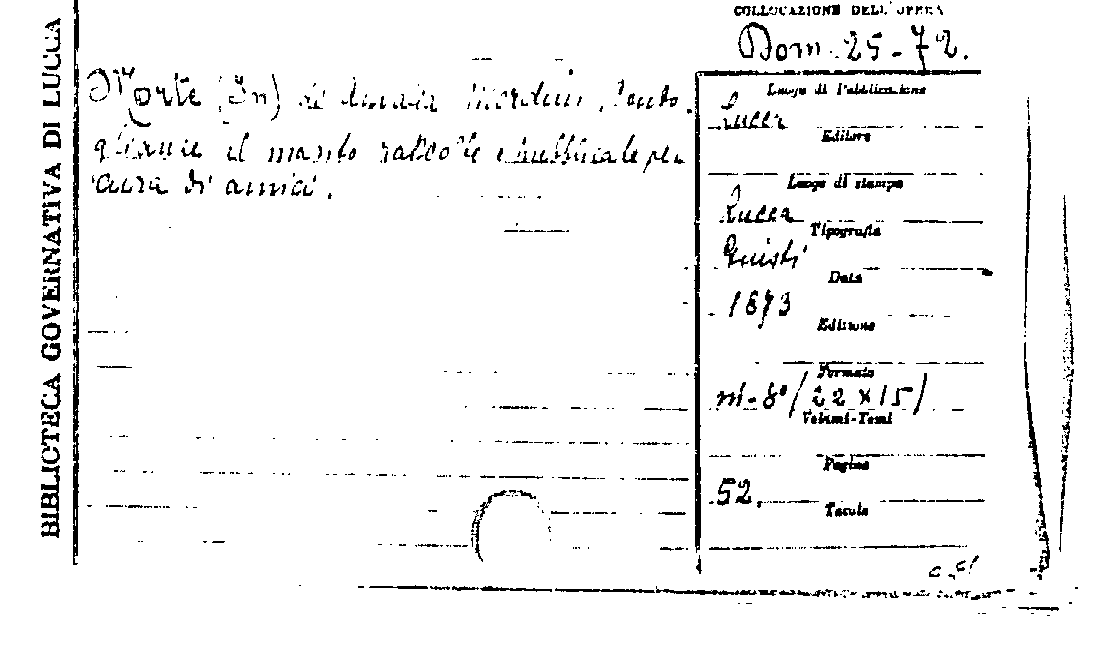 BIBLIOTECA GOVERNATIVA DI LUCCA
COLLOCAZIONE DELL'OPERA
Dom. 25-72.
Morte (In) di Amalia
il manto raccolte e pubblicate per
cura di amici.
Luogo di Pubblicazione
Lucca
Editore
Luogo di stampa
Lucca
Tipografia
Giusti
Data
1873
Edizione
Formato
in-8°/22×15/
Volumi-Tomi
Pagine
52.
Tavole